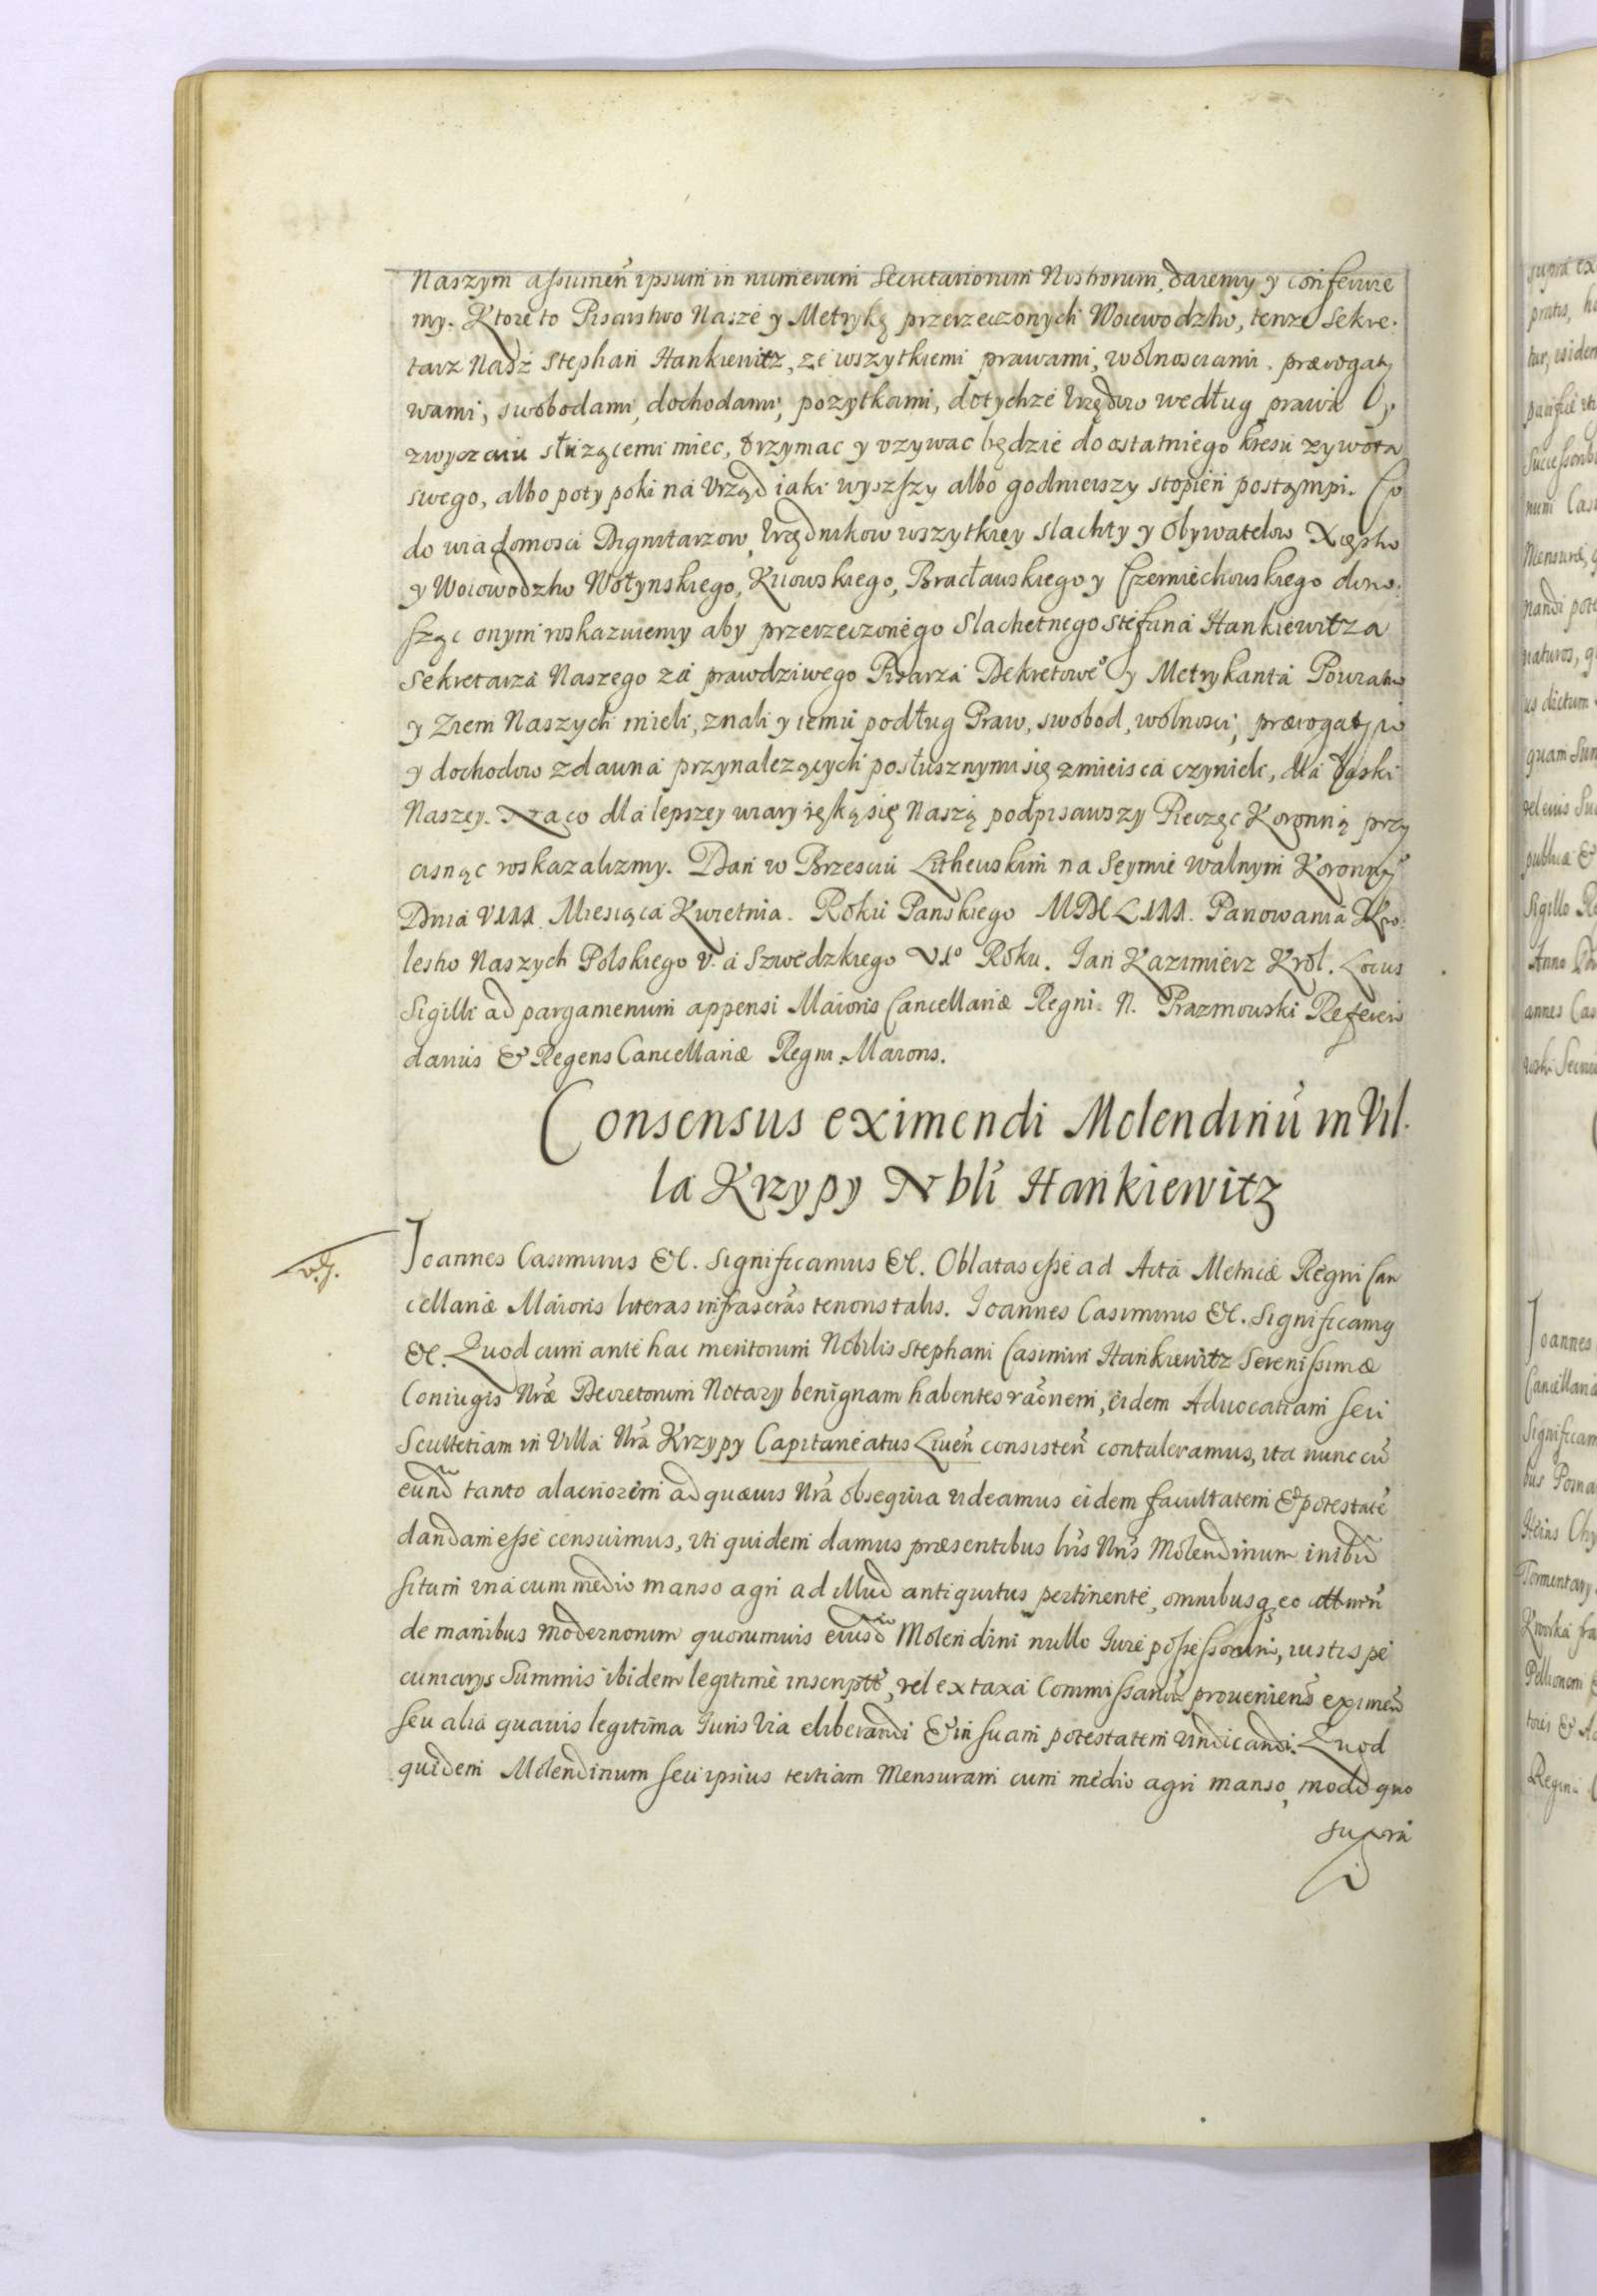 Naszym assumen̄ ipsum in numerum Secretariorum Nostrorum, daiemy y conferuie
my. Ktore to Pisarstwo Nasze y Metrykę przerzeczonych Woiewodztw, tenze Sekre
tarz Nasz Stephan Hankiewitz, ze wszytkiemi prawami, wolnosciami, prærogaty
wami, swobodami, dochodami, pozytkami, do tychze Urzędow według prawa y
zwyczaiu słuzącemi miec, trzymac y uzywac będzie do ostatniego kresu zywota
swego, albo poty poki na Urząd iaki wyszszy albo godnieiszy stopien postąmpi. Co
do wiadomosci Dignitarzow, Urzędnikow wszytkiey slachty y Obywatelow Xięstw
y Woiewodztw Wołynskiego, Kiiowskiego, Bracławskiego y Czerniechowskiego dono
sząc onym roskazuiemy aby przerzeczonego Slachetnego Stefana Hankiewitza
Sekretarza Naszego za prawdziwego Pisarza Dekretowe͠ y Metrykanta Powiatow
y Ziem Naszych mieli, znali y iemu podług Praw, swobod, wolnosci, prærogatyw
y dochodow zdawna przynalezących posłusznymi się z mieisca czynieli, dla łaski
Naszey. Na co dla lepszey wiary ręką się Naszą podpisawszy Pieczęc Koronną przy
cisnąc roskazalizmy. Dan w Brzesciu Lithewskim na Seymie walnym Koronny͠
Dnia VIII. Miesiąca Kwietnia. Roku Panskiego MDCLIII. Panowania Kro
lestw Naszych Polskiego V. a Szwedzkiego VIº Roku. Jan Kazimierz Krol. Locus
Sigilli ad pargamenum appensi Maioris Cancellariæ Regni. N. Prazmowski Referen
darius & Regens Cancellariæ Regni Maioris.
Consensus eximendi Molendinu͠ in Vil
la Krzypy Nbli͠ Hankiewitz
v. g.
Joannes Casimirus &c. Significamus &c. Oblatas esse ad Acta Metricæ Regni Can
cellariæ Maioris literas infrascr͠as tenoris talis. Joannes Casimirus &c. Significamus
&c. Quod cum ante hac meritorum Nobilis Stephani Casimiri Hankiewitz Serenissimæ
Coniugis Nr͠æ Decretorum Notarij benignam habentes ra͠onem, eidem Advocatiam seu
Scultetiam in Villa Nr͠a Krzypy Capitaneatus Liuen͠ consisten͠ contuleramus, ita nunc cu͠
eund͠ tanto alacriorem ad quævis Nr͠a obsequia videamus eidem facultatem & potestate͠
dandam esse censuimus, uti quidem damus præsentibus lr͠is Nr͠is Molendinum inibid͠
situm una cum medio manso agri ad illud antiquitus pertinente, omnibusq͠ eo attinen͠
de manibus modernorum quorumvis eiusd͠ Molendini nullo Iure possessorum, iustis pe
cuniarys Summis ibidem legitime inscriptis, vel ex taxa Commissariorum provenien͠ eximen͠d
seu alia quavis legitima Iuris Via eliberandi & in suam potestatem vindicandi. Quod
quidem Molendinum seu ipsius tertiam Mensuram cum medio agri manso, modo quo
supra